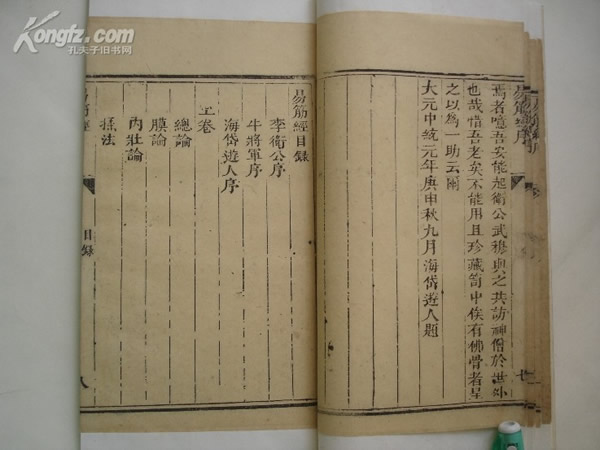 Kongfz.com
孔夫子旧书网
易筋經序
焉者噫吾安能起衛公武穆與之共訪神僧於世外
也哉惜吾老矣不能用且珍藏笥中俟有佛骨者呈
之以為一助云爾
大元中統元年庚申秋九月海岱遊人題
七
易筋經目録
李衛公序
牛將軍序
海岱遊人序
上卷
總論
膜論
內壯論
揉法
易筋經
目録
八